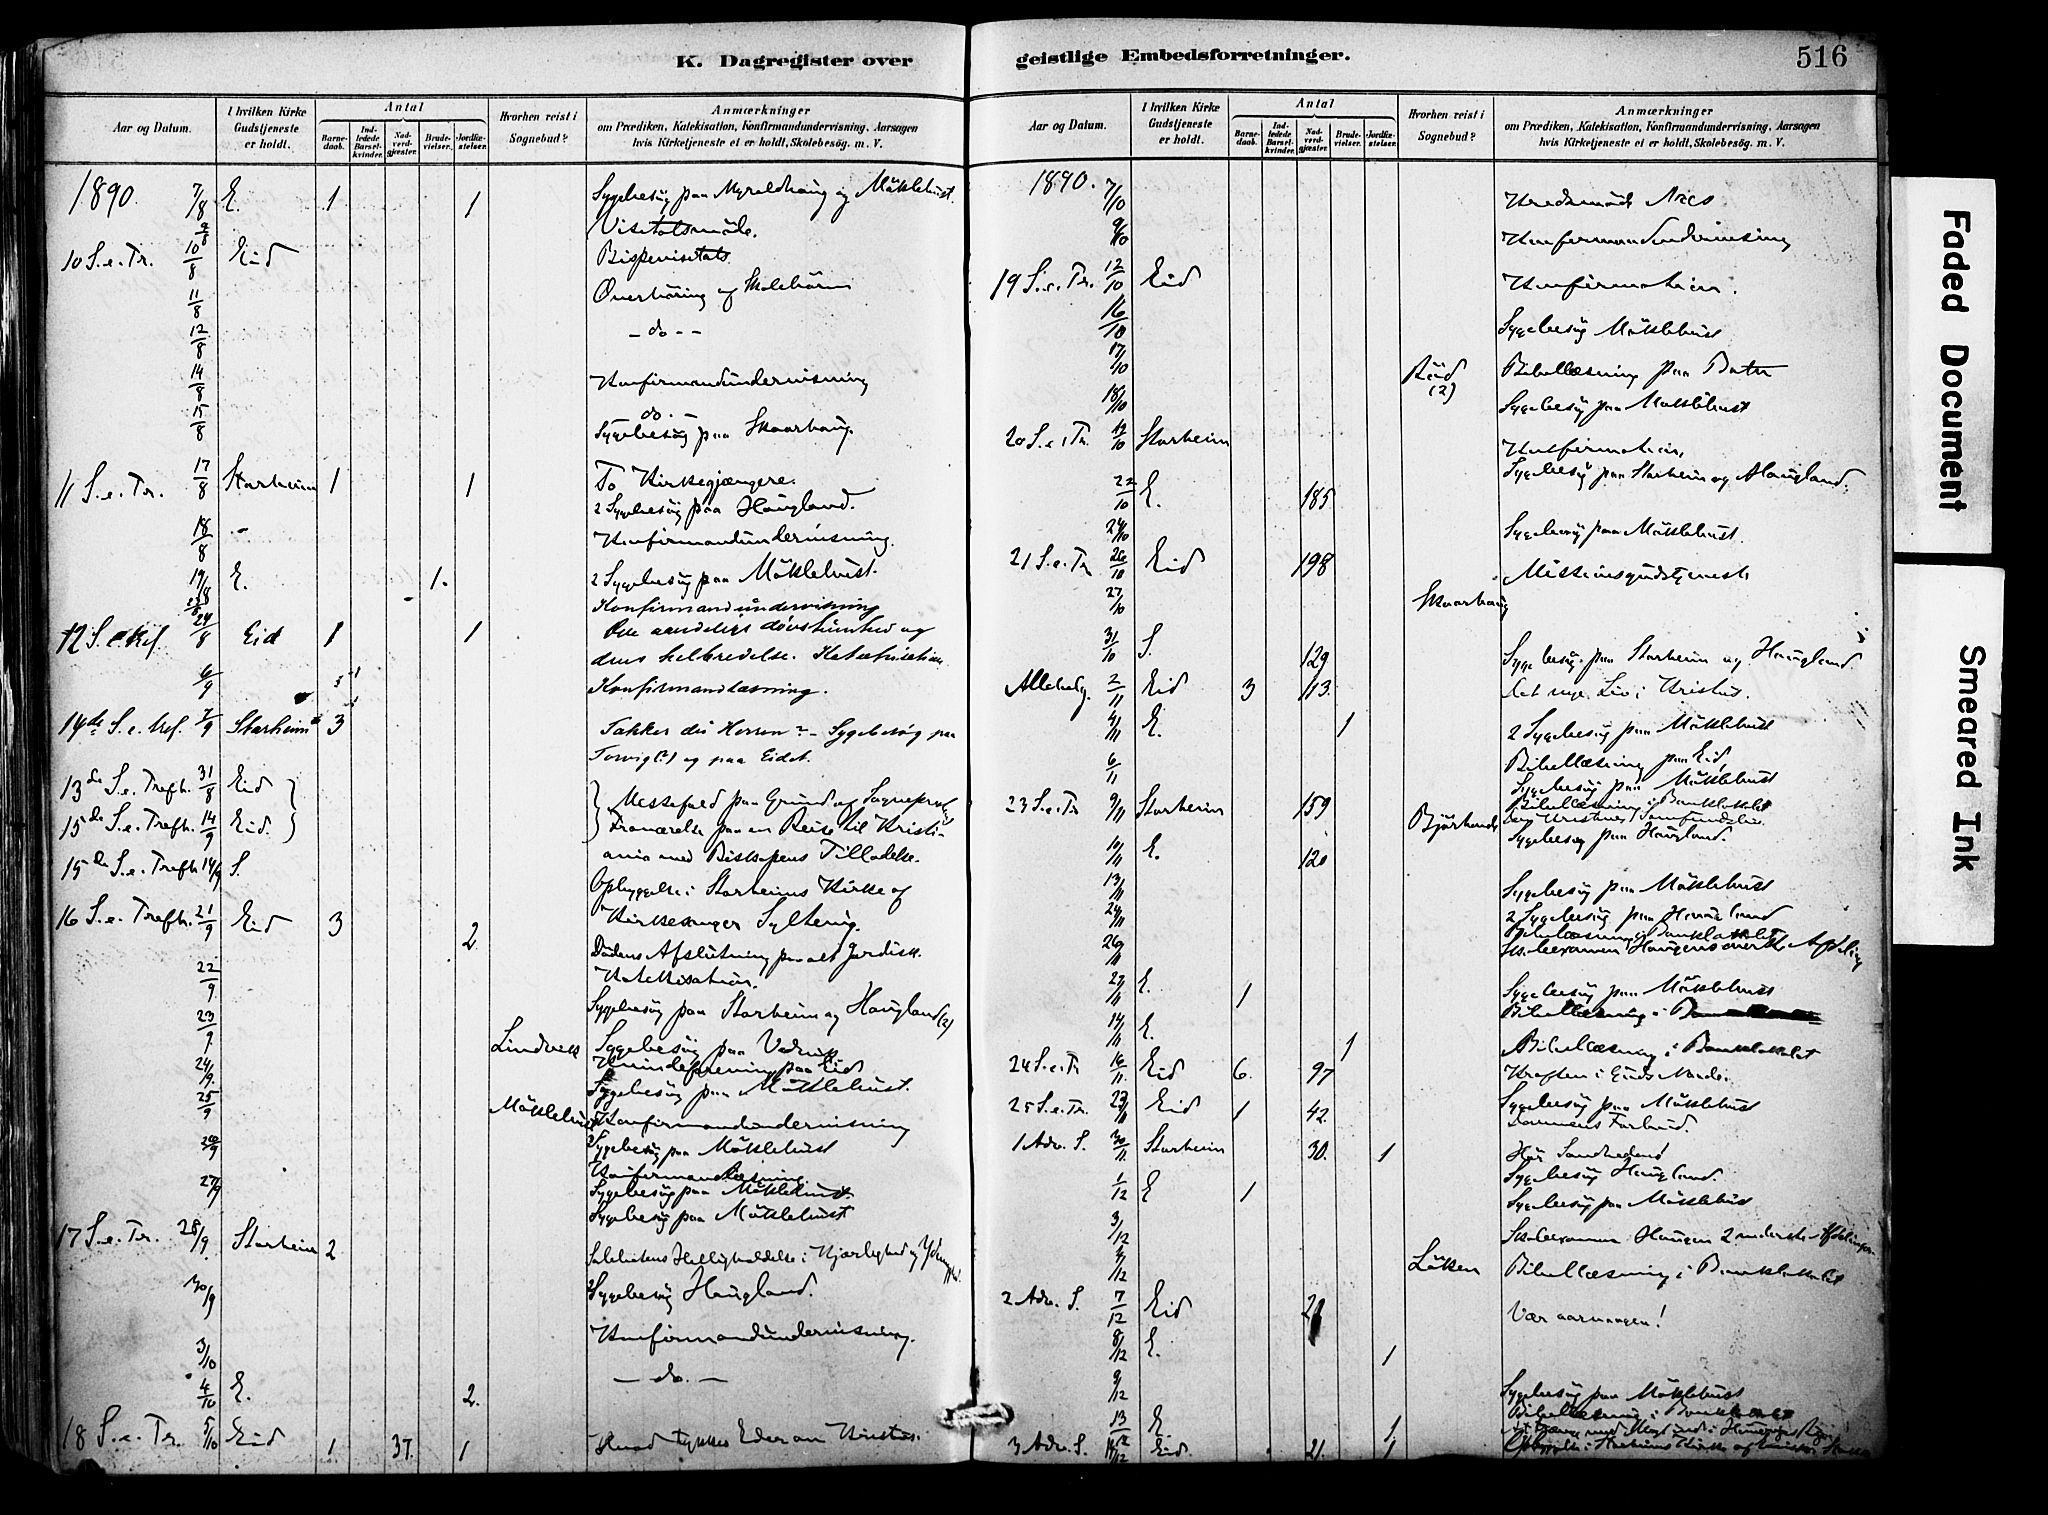 K. Dagregister over
Aar og Datum.
I hvilken Kirke Gudstjeneste er holdt.
Antal
Barnedaab.
Indledede Barselkvinder.
Nadverdgjæster.
Brudevielser.
Jordfæstelser.
Hvorhen reist i Sognebud?
Anmærkninger
om Prædiken, Katekisation, Konfirmandundervisning, Aarsagen
hvis Kirketjeneste ei er holdt, Skolebesøg. m. V.
1890. 7/8 E. 1 1 Sygebesøg paa Myroldhaug og Möklebust.
9/8 Visitatsmøde.
10 S.e.Tr. 10/8 Eid Bispevisitats
11/8 Overhøring af Skolebørn
12/8 - do - -
14/8 Konfirmandundervisning
15/8 - do. -
Sygebesøg paa Skaarhaug.
11 S.e.Tr. 17/8 Starheim 1 1 To Kirkegjængere.
2 Sygebesøg paa Haugland.
18/8 - Konfirmandundervisning.
19/8 E. 1. 2 Sygebesøg paa Möklebust.
23/8 Konfirmandundervisning
12 S. e Tref. 24/8 Eid 1 1 Om aandelig døvstumhed og
dens helbredelse. Katekisation
6/9 Konfirmandlæsning.
14de S. e. Tref. 7/9 Starheim 3 Takker du Herren? - Sygebesøg paa
Torvig(?) og paa Eidet.
13de S.e. Trefh. 31/8 Eid
15de S.e. Trefh. 14/9 Eid.
Messefald paa Grund af Sognepræstens
Fraværelse paa en Reise til Kristi-
ania med Biskopens Tilladelse.
15de S.e. Trefh 14/9 S. Opbyggelse i Starheims Kirke af
Kirkesanger Sylterig.
16 S.e. Trefh. 21/9 Eid 3 2. Dødens Afslutning paa alt Jordisk.
Katekisation.
22/9 Sygebesøg paa Starheim og Haugland (2)
23/9 Lindvik Sygebesøg paa
24/9. Kvindeforening paa Eid
Sygebesøg paa Möklebust.
25/9 Möklebust Konfirmandundervisning
26/9 Sygebesøg paa Möklebust
Konfirmandlæsning.
27/9 Sygebesøg paa Möklebust.
Sygebesøg paa Möklebust
17 S.e. Tr. 28/9. Starheim 2. Sabbatens Helligholdelse i Kjærlighed og Ydmyghed.
30/9 Sygebesøg Haugland.
3/10 Konfirmandundervisning.
4/10 E. 2. - do. -
18 S.e. Tr. 5/10 Eid 1. 37. 1 Hvad tykkes Eder om Kristus.
geistlige Embedsforretninger.
516
Aar og Datum.
I hvilken Kirke Gudstjeneste er holdt.
Antal
Barnedaab.
Indledede Barselkvinder.
Nadverdgjæster.
Brudevielser.
Jordfæstelser.
Hvorhen reist i Sognebud?
Anmærkninger
om Prædiken, Katekisation, Konfirmandundervisning, Aarsagen
hvis Kirketjeneste ei er holdt, Skolebesøg. m. V.
1890. 7/10
9/10 Konfirmandundervisning
19 S.e. Tr. 12/10 Eid Konfirmation.
16/10 Sygebesøg Möklebust
17/10 Röd (2) Bibellæsning paa
18/10 Sygebesøg paa Möklebust
20 S.e. Tr. 19/10 Starheim Konfirmation.
Sygebesøg paa Starheim og Haugland.
22/10 E. 185
24/10 Sygebesøg paa Möklebust.
21 S.e. Tr 26/10 Eid 198 Missionsgudstjeneste
27/10 Skaarhaug
31/10 S. 129 Sygebesøg paa Starheim og Haugland
Allehelg. 2/11 Eid 3 113. Det nye Liv i Kristus.
4/11 E. 1 2 Sygebesøg paa Möklebust
6/11 Bibellæsning paa Eid,
Sygebesøg paa Möklebust
23 S.e. Tr 9/11 Starheim 159 Bibellæsning i Banklokalet
Den Kristnes Samfundsliv.
Sygebesøg paa Haugland.
10/11 E. 120
13/11 Sygebesøg paa Möklebust
24/11 2 Sygebesøg paa
Bibellæsning i Banklokalet
26/11 Skoleexamen Haugens øverste Afdeling
27/11 E. 1 Sygebesøg paa Möklebust
Bibellæsning i
14/11 E. 1 Bibellæsning i Banklokalet
24 S.e. Tr 16/11. Eid 6. 97 Kraften i Guds Naade.
25 S.e. Tr. 23/11 Eid 1 42. Sygebesøg paa Möklebust
Dommens Forbud.
1 Adv. S. 30/11 Starheim 30. 1 Hør Sandheden!
Sygebesøg Haugland.
1/12 E 1 Sygebesøg paa Möklebust
3/12 Skoleexamen Haugen 2 nederste Afdelinger.
4/12 Löken Bibellæsning i Banklokalet
2 Adv. S. 7/12 Eid Vær aarvaagen!
8/12 E. 1
9/12 Sygebesøg paa Möklebust
13/12 E. 1. Bibellæsning i Banklokalet
3 Adv. S. 14/12 Eid. 21. 1
Faded Document
Smeared Ink